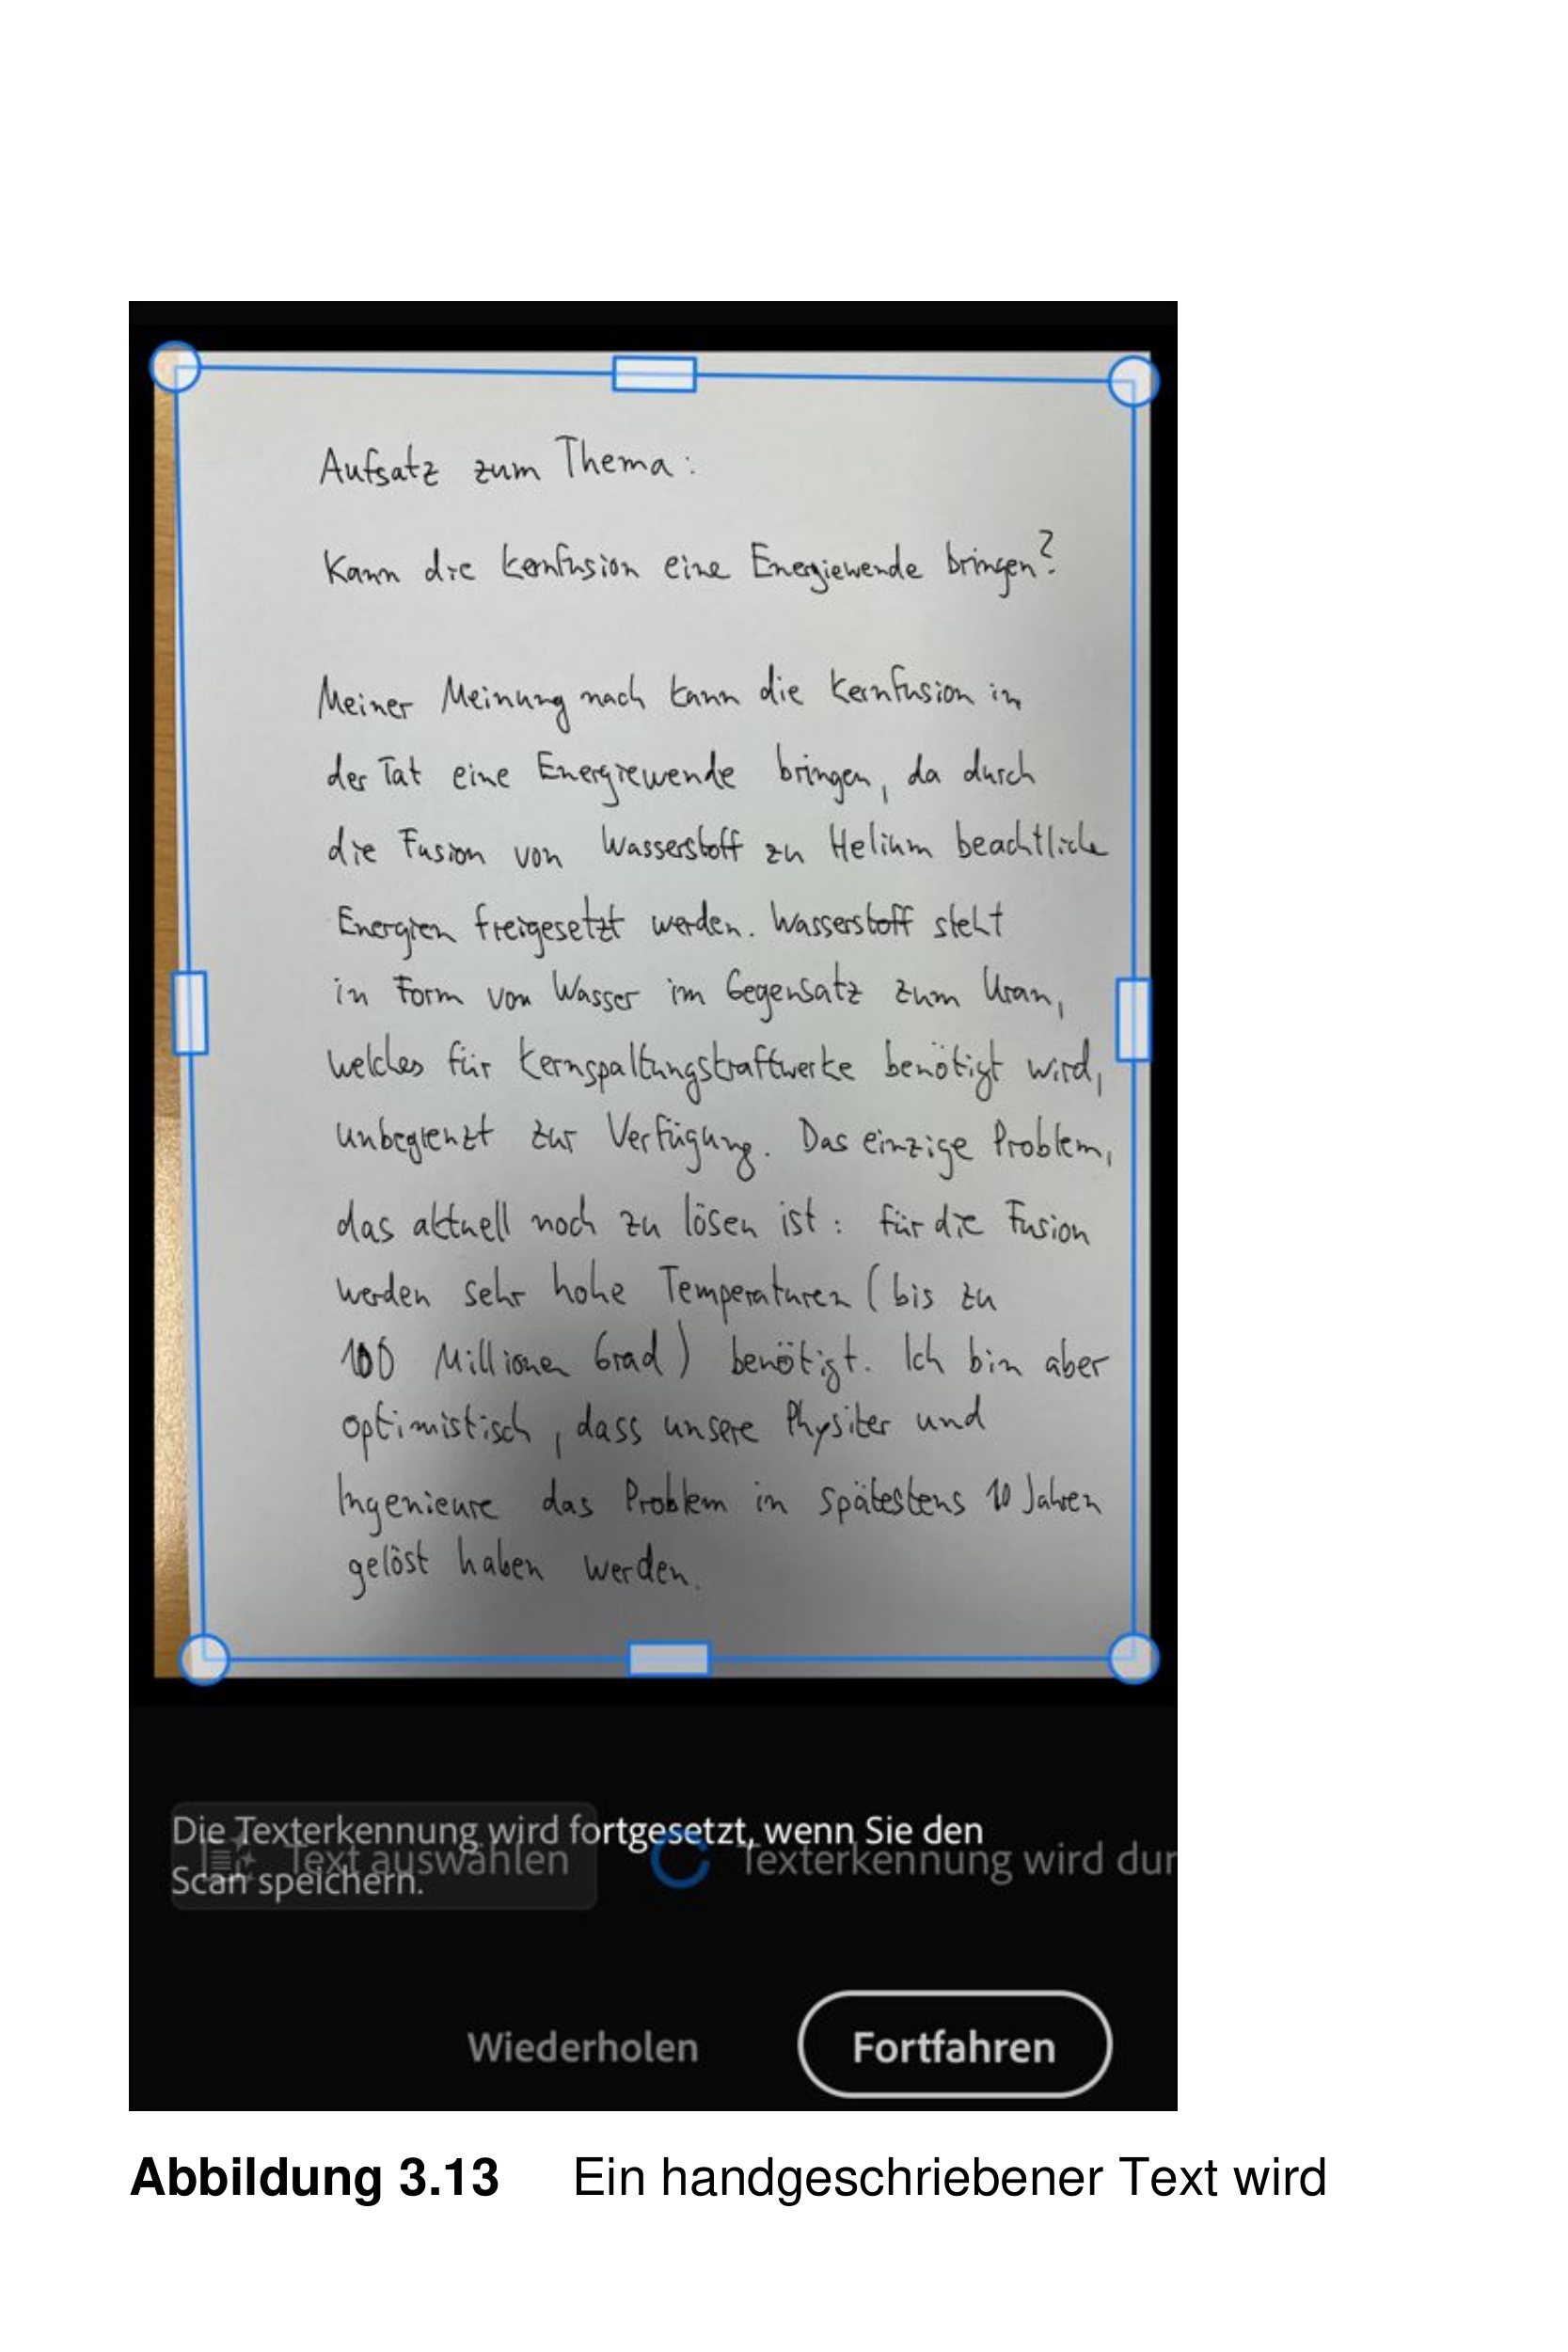 Aufsatz zum Thema:
Kann die Kernfusion eine Energiewende bringen?
Meiner Meinung nach kann die Kernfusion in
der Tat eine Energiewende bringen, da durch
die Fusion von Wasserstoff zu Helium beachtliche
Energien freigesetzt werden. Wasserstoff steht
in Form von Wasser im Gegensatz zum Uran,
welches für Kernspaltungskraftwerke benötigt wird,
unbegrenzt zur Verfügung. Das einzige Problem,
das aktuell noch zu lösen ist: für die Fusion
werden sehr hohe Temperaturen (bis zu
100 Millionen Grad) benötigt. Ich bin aber
optimistisch, dass unsere Physiker und
Ingenieure das Problem in spätestens 10 Jahren
gelöst haben werden.
Die Texterkennung wird fortgesetzt, wenn Sie den
Scan speichern.
Text auswählen
Texterkennung wird dur
Wiederholen
Fortfahren
Abbildung 3.13 Ein handgeschriebener Text wird